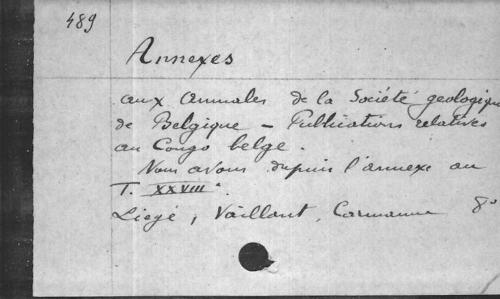 489
Annexes
aux Annales de la Société geologique
de Belgique - Publications relatives
au Congo belge.
Nous avons depuis l'annexe au
T. XXVIII.
Liège, Vaillant, Carmanne 8°